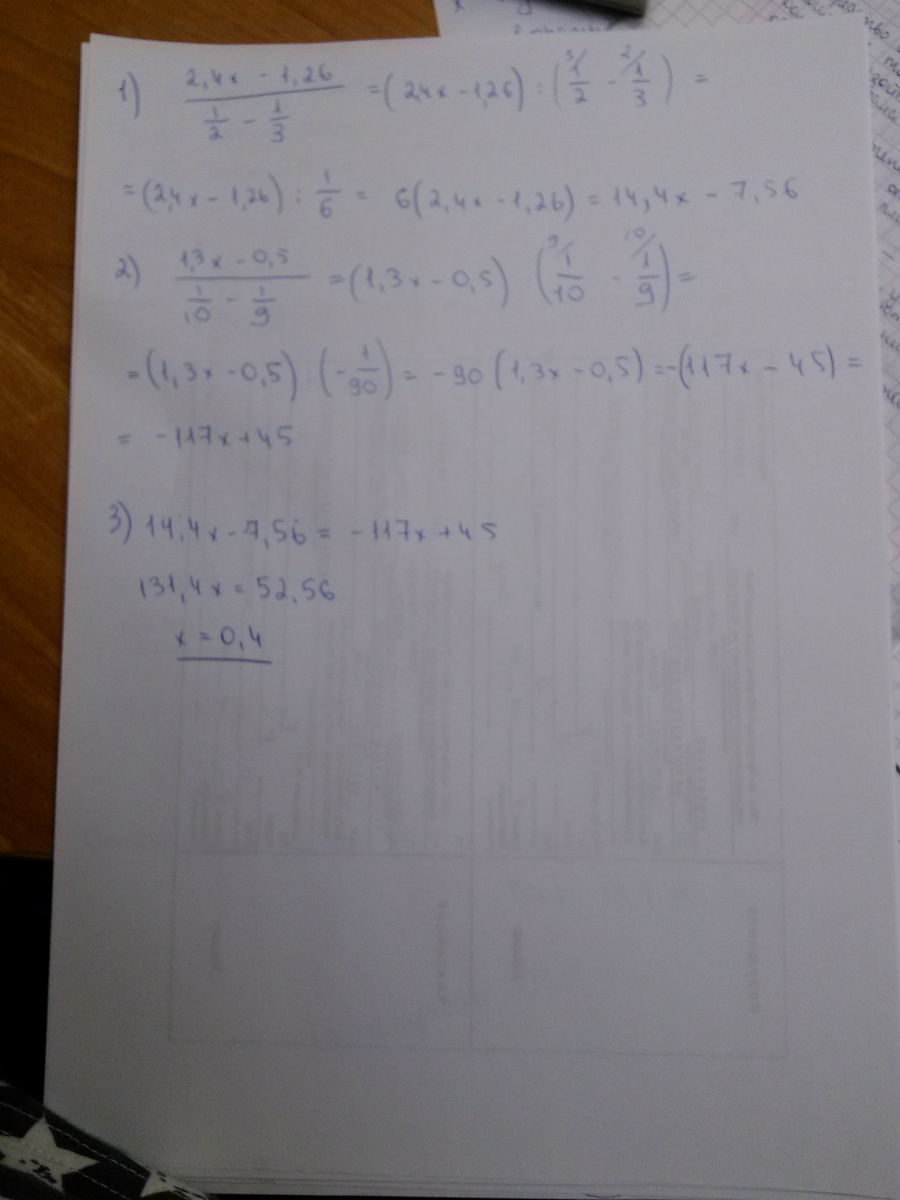 1) (2,4x - 1,26)/(1/2 - 1/3) = (2,4x - 1,26) : (3/ 1/2 - 2/ 1/3) =
= (2,4x - 1,26) : 1/6 = 6(2,4x - 1,26) = 14,4x - 7,56
2) (1,3x - 0,5)/(1/10 - 1/9) = (1,3x - 0,5) : (9/ 1/10 - 10/ 1/9) =
= (1,3x - 0,5) : (- 1/90) = -90 (1,3x - 0,5) = -(117x - 45) =
= -117x + 45
3) 14,4x - 7,56 = -117x + 45
131,4x = 52,56
x = 0,4